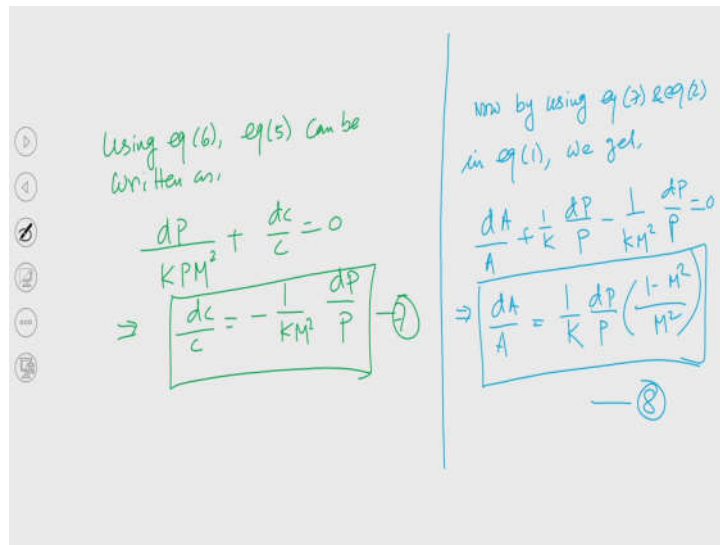 Using eq(6), eq(5) can be
written as,
dP/KPM² + dc/c = 0
⇒ dc/c = - 1/KM² dP/P —⑦
Now by using eq(7) & eq(2)
in eq(1), we get,
dA/A + 1/K dP/P - 1/KM² dP/P = 0
⇒ dA/A = 1/K dP/P (1-M²/M²)
—⑧